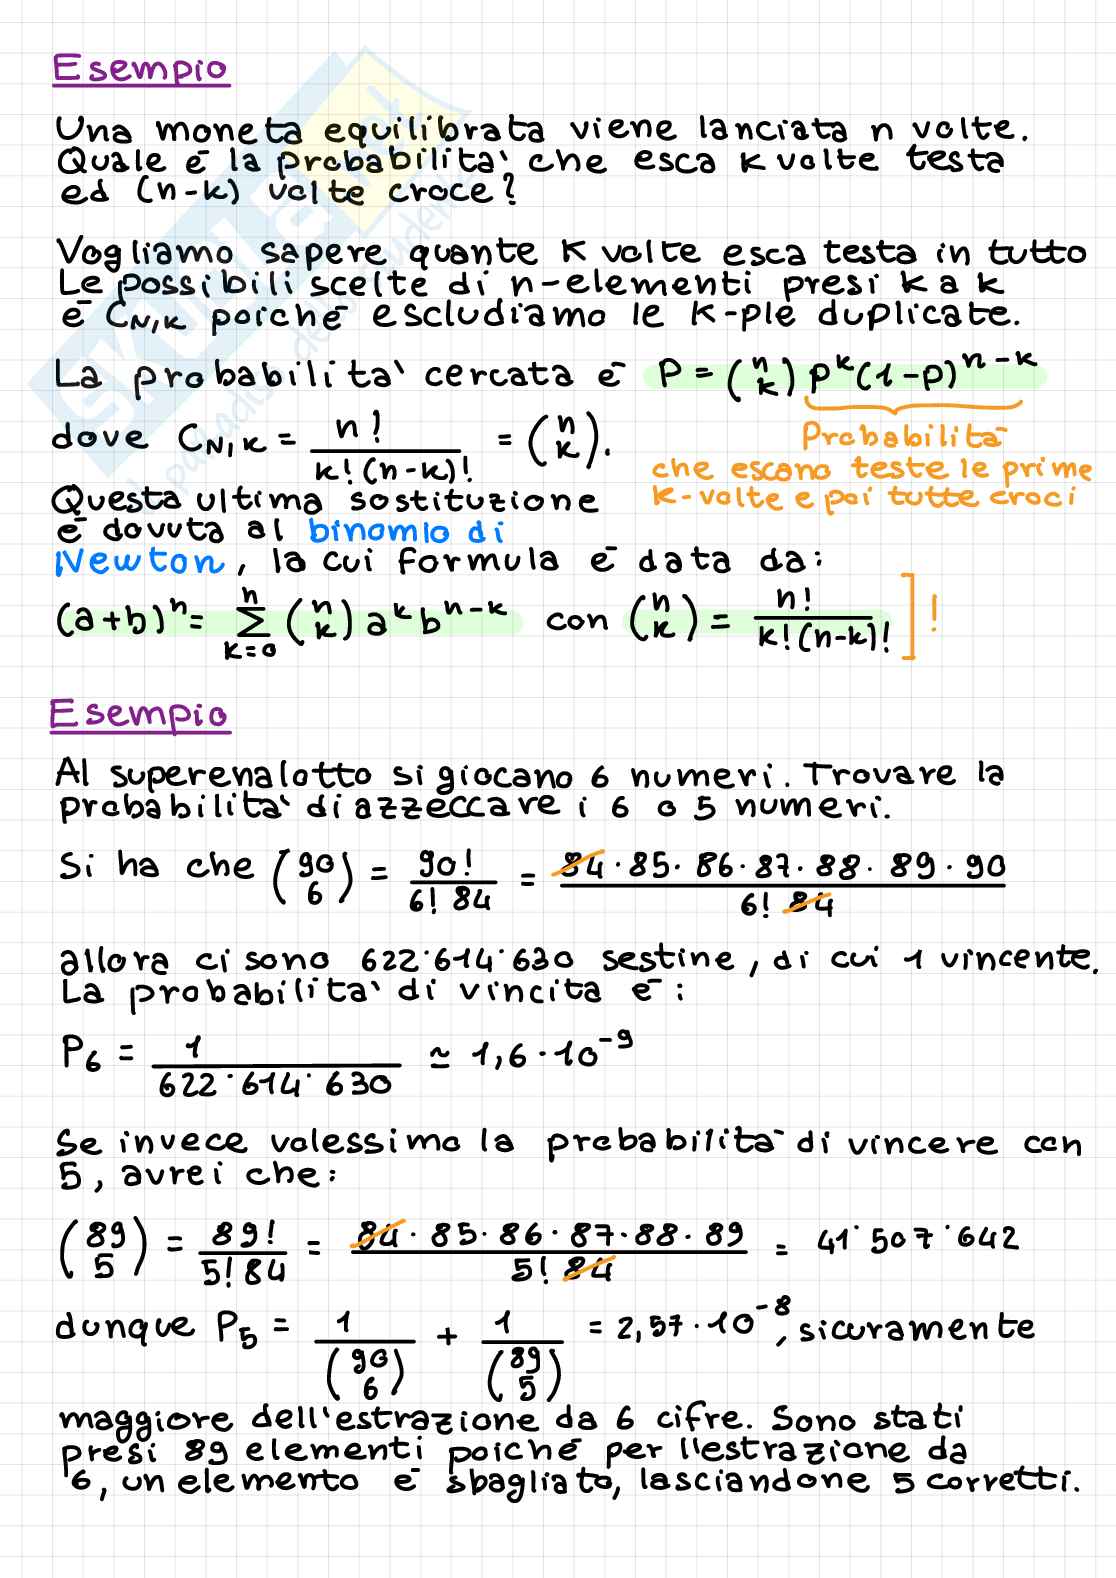 Esempio
Una moneta equilibrata viene lanciata n volte.
Quale è la probabilità che esca k volte testa
ed (n-k) volte croce?
Vogliamo sapere quante K volte esca testa in tutto
Le possibili scelte di n-elementi presi k a k
è C_{N,K} poiché escludiamo le K-ple duplicate.
La probabilità cercata è P = (n k) p^k (1-p)^{n-k}
dove C_{N,K} = n! / k!(n-k)! = (n k).
Probabilità
che escano teste le prime
k-volte e poi tutte croci
Questa ultima sostituzione
è dovuta al binomio di
Newton, la cui formula è data da:
(a+b)^n = Σ_{k=0}^{n} (n k) a^k b^{n-k} con (n k) = n! / k!(n-k)! ] !
Esempio
Al superenalotto si giocano 6 numeri. Trovare la
probabilità di azzeccare i 6 o 5 numeri.
Si ha che (90 6) = 90! / 6! 84 = 84 · 85 · 86 · 87 · 88 · 89 · 90 / 6! 84
allora ci sono 622˙614˙630 sestine, di cui 1 vincente.
La probabilità di vincita è:
P_6 = 1 / 622˙614˙630 ≃ 1,6 · 10^{-9}
Se invece volessimo la probabilità di vincere con
5, avrei che:
(89 5) = 89! / 5! 84 = 84 · 85 · 86 · 87 · 88 · 89 / 5! 84 = 41˙507˙642
dunque P_5 = 1 / (90 6) + 1 / (89 5) = 2,57 · 10^{-8}, sicuramente
maggiore dell'estrazione da 6 cifre. Sono stati
presi 89 elementi poiché per l'estrazione da
6, un elemento è sbagliato, lasciandone 5 corretti.